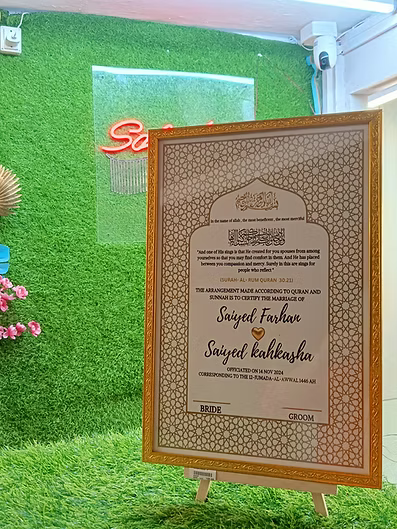 in the name of allah , the most beneficent , the most merciful
"And one of His sings is that He created for you spouses from among
yourselves so that you may find comfort in them. And He has
placed between you compassion and mercy. Surely in this are sings for
people who reflect"
(SURAH- AL- RUM QURAN 30:21)
THE ARRANGEMENT MADE ACCORDING TO QURAN AND
SUNNAH IS TO CERTIFY THE MARRIAGE OF
Saiyed Farhan
Saiyed kahkasha
OFFICIATED ON 14 NOV 2024
CORRESPONDING TO THE 12-JUMADA-AL-AWWAL 1446 AH
BRIDE
GROOM